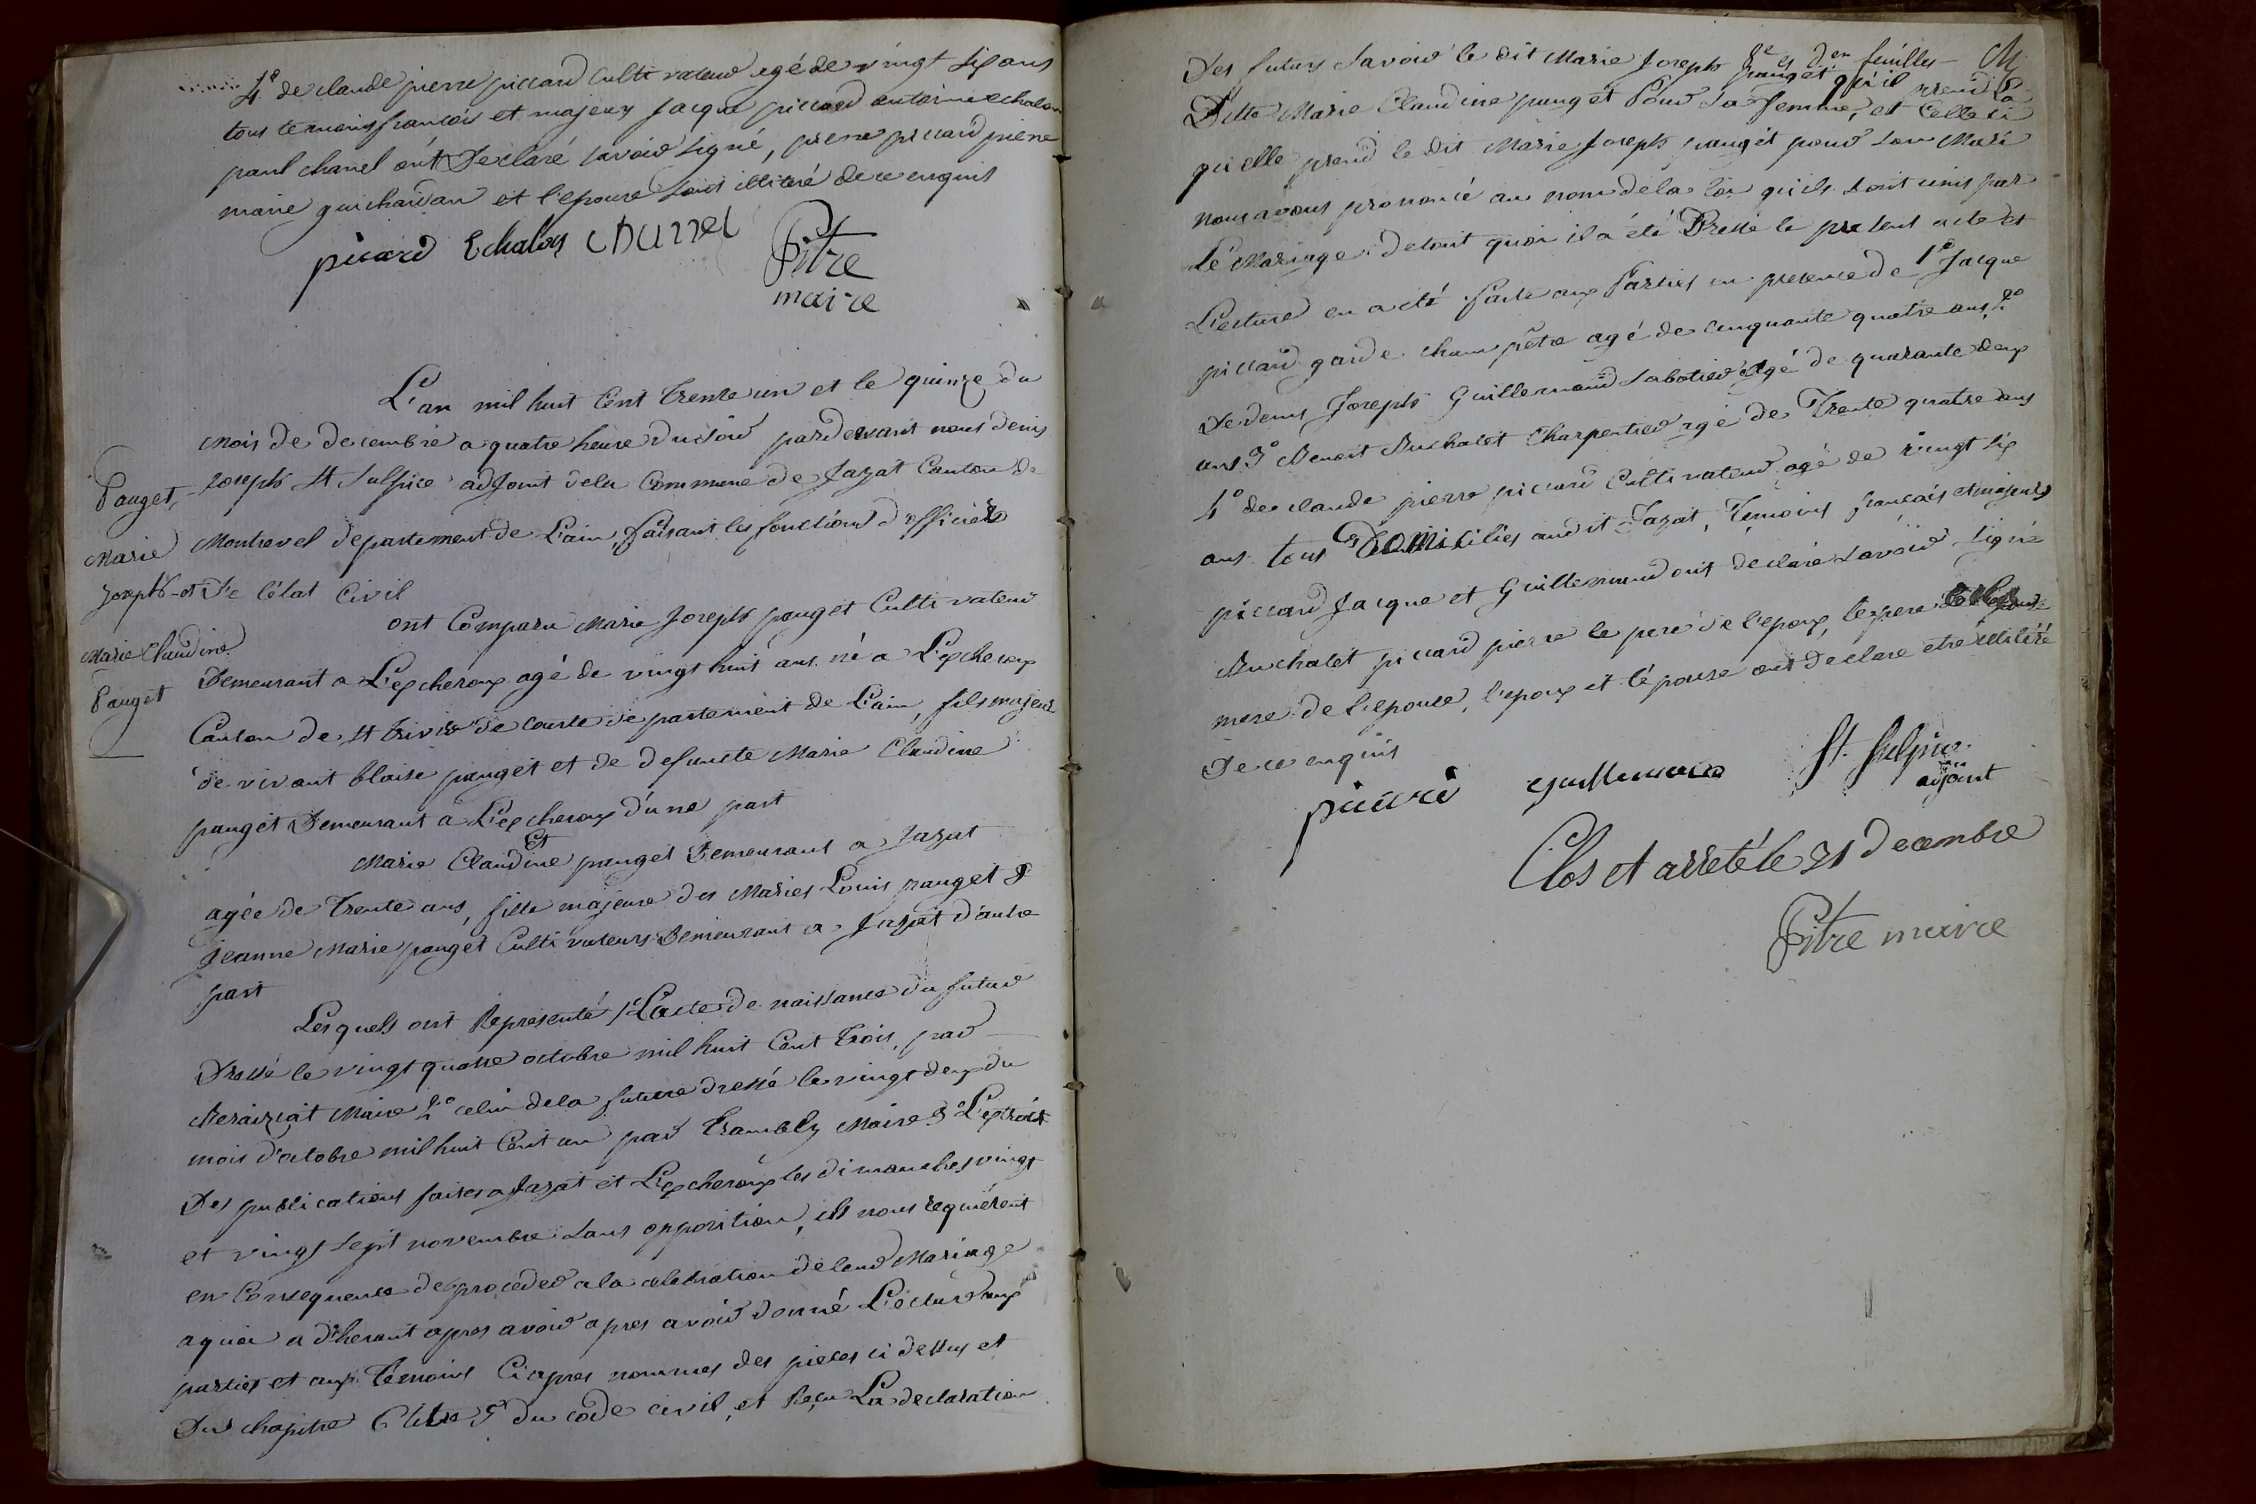 4° de claude pierre piccard Cultivateur agé de vingt six ans
tous temoins francois et majeurs Jacque piccard antoine echalon
paul charnel ont Declaré savoir signé, pierre piccard pierre
marie guichardan et l'epouse sont illitéré de ce enquis
picard Echalon Charnel
Pitre
maire
L'an mil huit Cent trente un et le quinze du
mois de decembre a quatre heure du soir pardevant nous denis
Joseph St Sulpice adjoint dela Commune de Jayat Canton de
Montrevel departement de L'ain, faisant les fonctions d'officier
De l'état Civil
Pauget,
Marie
Joseph et
Marie Claudine
Pauget
ont Comparu Marie Joseph pauget Cultivateur
Demeurant a L'excheroux agé de vingt huit ans né a L'excheroux
Canton de St trivier de courte departement de L'ain, fils majeur
de vivant blaise pauget et de defuncte Marie Claudine
pauget Demeurant a L'excheroux d'une part
Et
Marie Claudine pauget Demeurant a Jayat
agée de Trente ans, fille majeure des Mariés Louis pauget &
Jeanne Marie pauget Cultivateurs Demeurant a Jayat d'autre
part
Lesquels ont Representé 1° L'acte de naissance du futur
Dressé le vingt quatre octobre mil huit Cent trois, par
Beraizeat Maire 2° celui dela future dressé le vingt deux du
mois d'octobre mil huit Cent un par Trambly Maire 3° L'extrait
Des publications faites a Jayat et L'excheroux les dimanches vingt
et vingt sept novembre sans opposition, ils nous requièrent
en Consequence de proceder a la celebration de leur Mariage
a quoi adherant apres avoir apres avoir donné Lecture aux
parties et aux Témoins Ci apres nommés des pieces ci dessus et
Du chapitre 6 titre 5 du code civil, et Reçu La declaration
2e et der feuilles
Des futurs Savoir le dit Marie Joseph pauget qu'il prend La
Ditte Marie Claudine pauget Pour Sa Femme, et Celle ci
qu'elle prend le dit Marie Joseph pauget pour Son Mari
nous avons prononcé au nom de la loi qu'ils sont unis par
Le Mariage. de tout quoi il a été Dressé le present acte et
Lecture en a été faite aux Parties en presence de 1° Jacque
piccard garde champêtre agé de cinquante quatre ans, 2°
De denis Joseph Guillermaud Sabotier Agé de quarante deux
ans 3° Benoit Buchalet Charpentier agé de Trente quatre ans
4° de claude pierre piccard Cultivateur agé de vingt six
ans tous Domiciliés audit Jayat, Témoins francais et majeurs
piccard Jacque et Guillermaud ont declaré savoir signé
Buchalet piccard pierre le pere de l'epoux, le pere
mere de l'epouse, l'epoux et l'épouse ont declare etre illitéré
De ce enquis
picard Guillermaud St. Sulpice
adjoint
Clos et arreté le 31 Decembre
Pitre maire